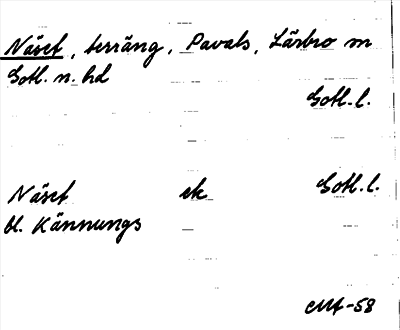 Näset, terräng, Pavals, Lärbro sn
Gotl. n. hd
Gotl. l.
Näset ek Gotl. l.
bl. Kännungs
MA-58